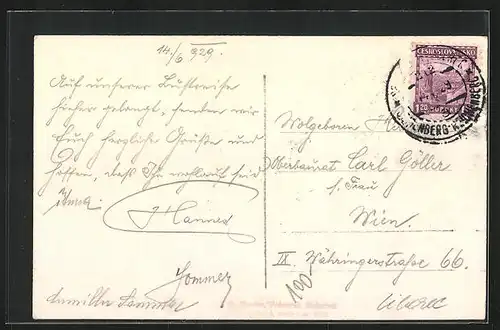 14./6 1929.
Auf unserer Lustreise
hieher gelangt, senden wir
Euch herzliche Grüße und
hoffen, daß Ihr wohlauf seid
Hannes
Sommer
ČESKOSLOVENSKO
1.20
Wolgeboren
Oberbaurat Carl Göller
s. Frau
Wien.
IX Währingerstraße 66.
100-